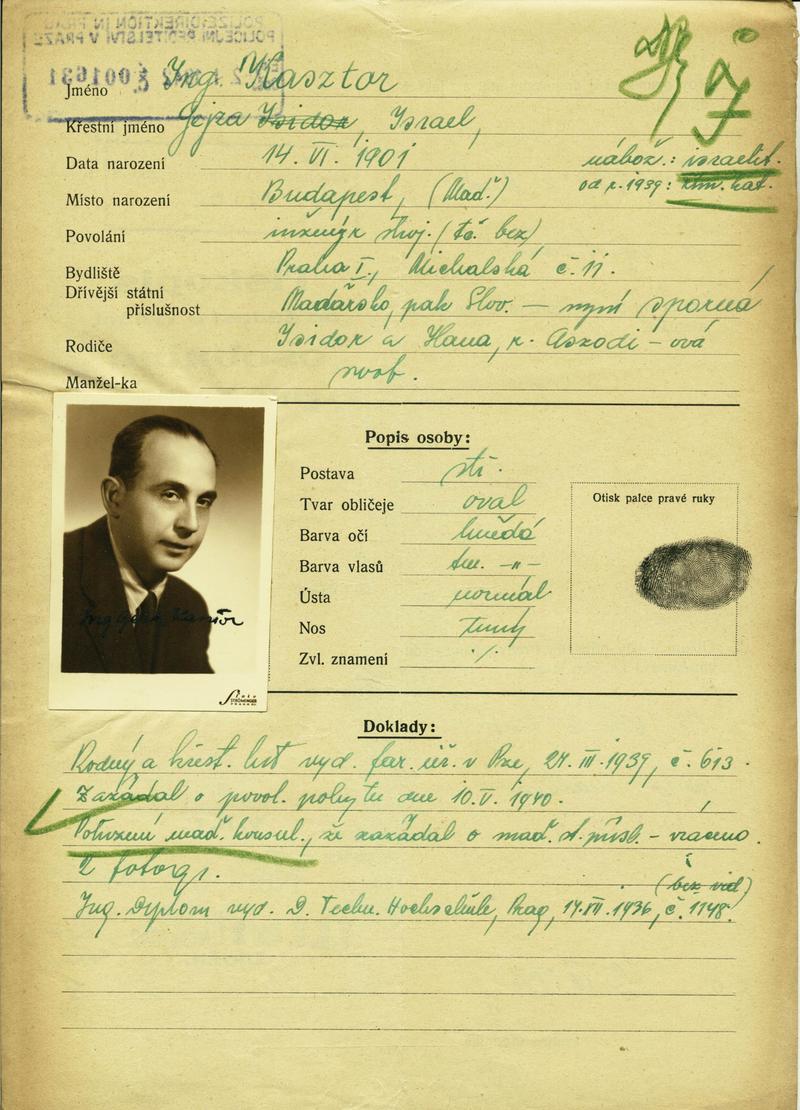 POLIZEIDIREKTION IN PRAG
POLICEJNÍ ŘEDITELSTVÍ V PRAZE
001631
Jméno Ing. Kasztor
Křestní jméno Gejza Isidor, Israel,
J
Data narození 14. VI. 1901
nábož.: israelit.
od r. 1939: řím. kat.
Místo narození Budapest, (Maď.)
Povolání inženýr stroj. (tč. bez)
Bydliště Praha I., Michalská č. 11.
Dřívější státní
příslušnost Maďarsko, pak Slov. – nyní sporná
Rodiče Isidor a Hana, r. Aszodi – ová
Manžel-ka svob.
Popis osoby:
Postava stř.
Tvar obličeje oval
Barva očí hnědá
Barva vlasů tm. –„–
Ústa normál
Nos
Zvl. znamení ·/.
Otisk palce pravé ruky
Foto
STRÖMINGER
Doklady:
Rodný a křest. list vyd. far. úř. v Pze, 27. III. 1939, č. 613.
Zažádal o povol. pobytu dne 10. V. 1940.
Potvrzení maď. konsul., že zažádal o maď. st. přísl. – vráceno.
2 fotogr.
(bez vid)
Ing. Dyplom vyd. D. Techn. Hochschule, Prag, 17. XII. 1936, č. 1148.